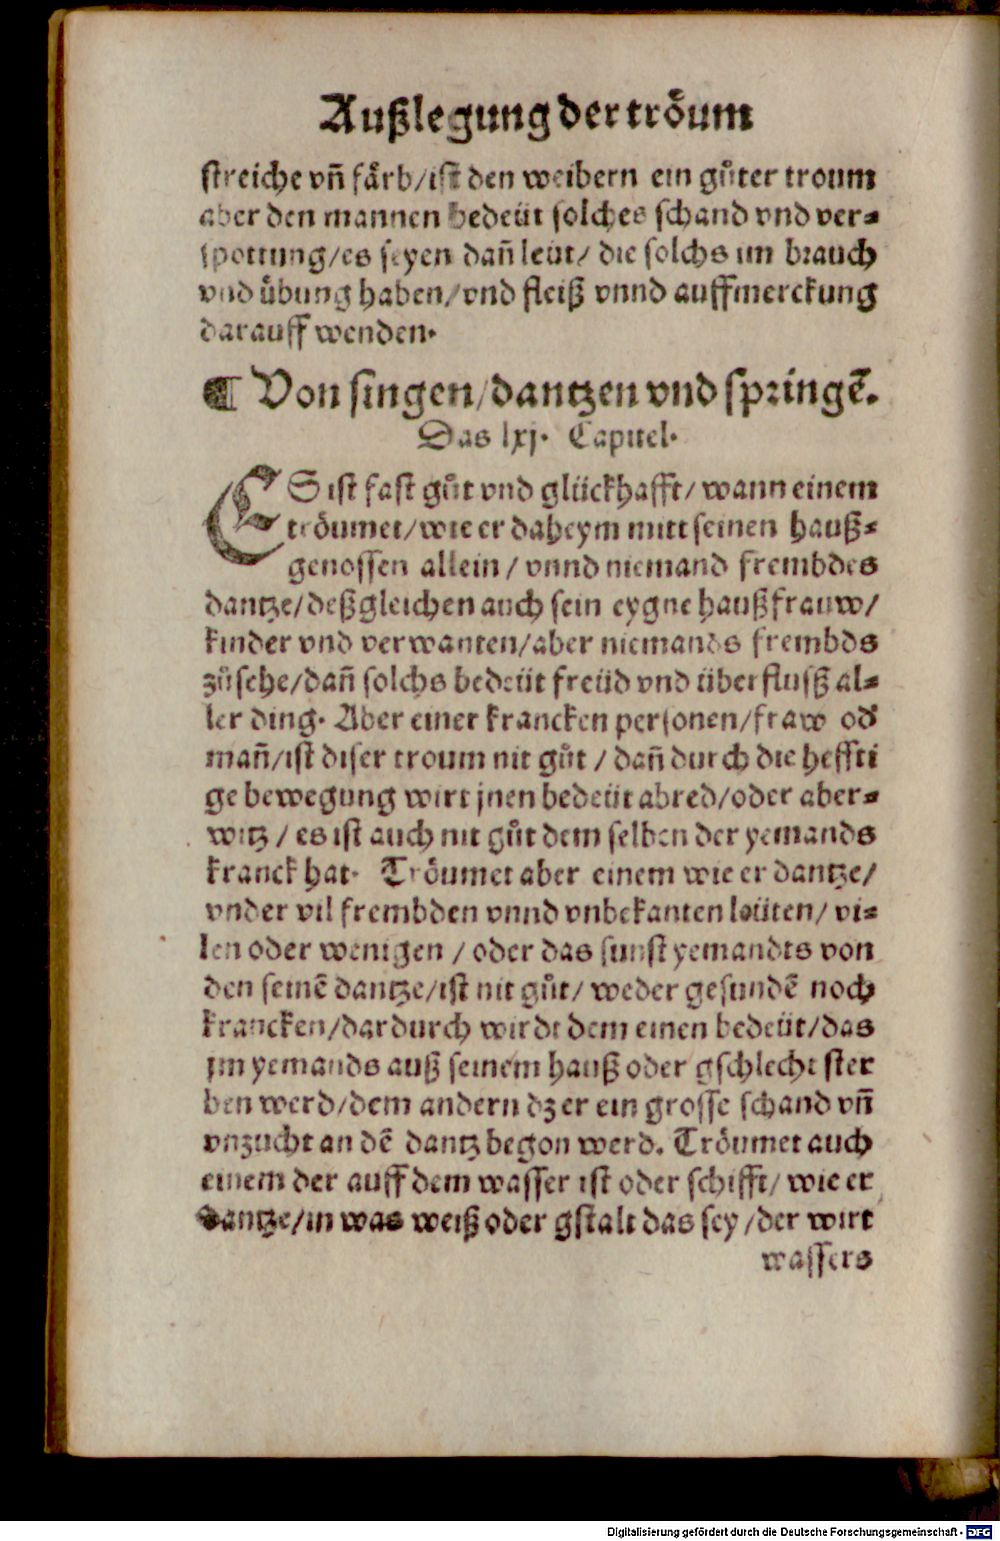 Außlegung der tröum
streiche vñ färb/ist den weibern ein gůter troum
aber den mannen bedeüt solches schand vnd ver⸗
spottung/es seyen dañ leüt/ die solchs im brauch
vnd übung haben/vnd fleiß vnnd auffmerckung
darauff wenden.
¶ Von singen/dantzen vnd springẽ.
Das lxj. Capitel.
ES ist fast gůt vnd glückhafft/ wann einem
tröumet/wie er daheym mitt seinen hauß⸗
genossen allein / vnnd niemand frembdes
dantze/deßgleichen auch sein eygne haußfrauw/
kinder vnd verwanten/aber niemands frembds
zůsehe/dañ solchs bedeüt freüd vnd überflusß al⸗
ler ding. Aber einer krancken personen/fraw oď
mañ/ist diser troum nit gůt / dañ durch die heffti
ge bewegung wirt jnen bedeüt abred/oder aber⸗
witz / es ist auch nit gůt dem selben der yemands
kranck hat. Tröumet aber einem wie er dantze/
vnder vil frembden vnnd vnbekanten leüten/ vi⸗
len oder wenigen / oder das sunst yemandts von
den seinẽ dantze/ist nit gůt/ weder gesundẽ noch
krancken/dardurch wirdt dem einen bedeüt/das
jm yemands auß seinem hauß oder gschlecht ster
ben werd/dem andern dz er ein grosse schand vñ
vnzucht an dẽ dantz begon werd. Tröumet auch
einem der auff dem wasser ist oder schifft/ wie er
dantze/in was weiß oder gstalt das sey /der wirt
wassers
Digitalisierung gefördert durch die Deutsche Forschungsgemeinschaft - DFG